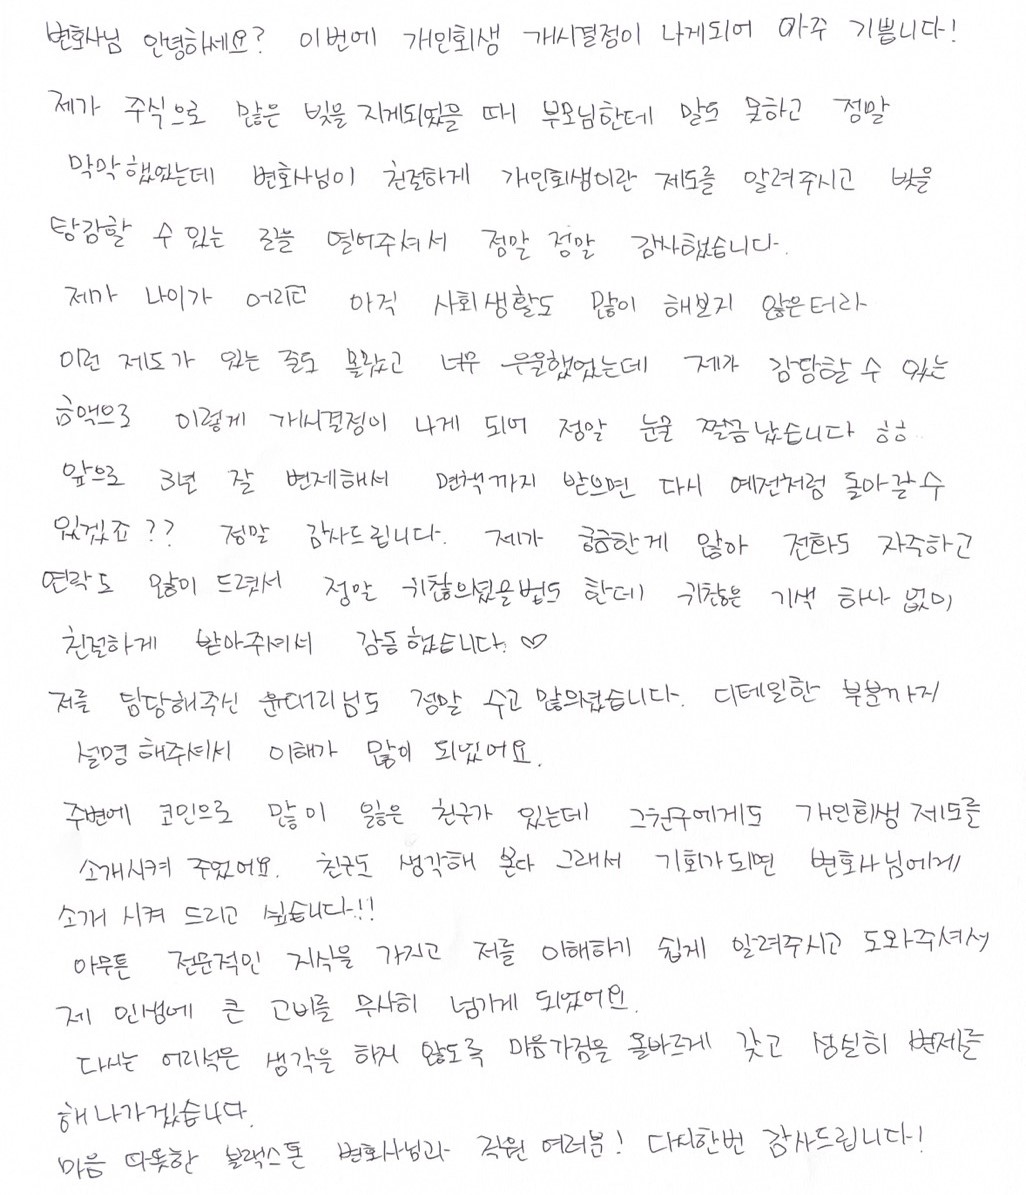 변호사님 안녕하세요? 이번에 개인회생 개시결정이 나게되어 아주 기쁩니다!
제가 주식으로 많은 빚을 지게되었을 때 부모님한테 말도 못하고 정말
막막했었는데 변호사님이 친절하게 개인회생이란 제도를 알려주시고 빚을
탕감할 수 있는 길을 열어주셔서 정말 정말 감사했습니다.
제가 나이가 어리고 아직 사회생활도 많이 해보지 않은터라
이런 제도가 있는 줄도 몰랐고 너무 우울했었는데 제가 감당할 수 있는
금액으로 이렇게 개시결정이 나게 되어 정말 눈물 찔끔 났습니다 ㅎㅎ
앞으로 3년 잘 변제해서 면책까지 받으면 다시 예전처럼 돌아갈 수
있겠죠?? 정말 감사드립니다. 제가 궁금한게 많아 전화도 자주하고
연락도 많이 드려서 정말 귀찮으셨을법도 한데 귀찮은 기색 하나 없이
친절하게 받아주셔서 감동했습니다. ♡
저를 담당해주신 윤대리님도 정말 수고 많으셨습니다. 디테일한 부분까지
설명 해주셔서 이해가 많이 되었어요.
주변에 코인으로 많이 잃은 친구가 있는데 그친구에게도 개인회생 제도를
소개시켜 주었어요. 친구도 생각해 본다 그래서 기회가되면 변호사님에게
소개 시켜 드리고 싶습니다!!
아무튼 전문적인 지식을 가지고 저를 이해하기 쉽게 알려주시고 도와주셔서
제 인생에 큰 고비를 무사히 넘기게 되었어요.
다시는 어리석은 생각을 하지 않도록 마음가짐을 올바르게 갖고 성실히 변제를
해나가겠습니다.
마음 따뜻한 블랙스톤 변호사님과 직원 여러분! 다시한번 감사드립니다!